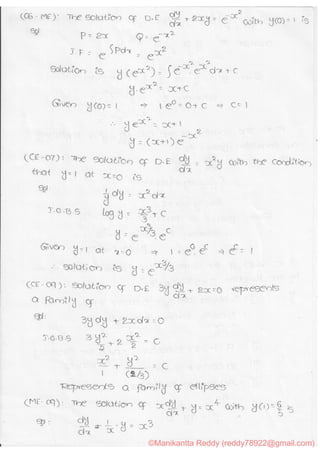 (06-ME): The Solution of D.E dy/dx + 2xy = e^-x² with y(0)=1 is
Sol P = 2x Q = e^-x²
I.F = e^∫Pdx = e^x²
Solution is y(e^x²) = ∫e^-x² e^x² dx + c
y.e^x² = x+c
Given y(0)=1 ⇒ 1 e⁰ = 0+c ⇒ c=1
∴ y e^x² = x+1
y = (x+1) e^-x²
(CE-07): The solution of D.E dy/dx = x²y with the condition
that y=1 at x=0 is
Sol 1/y dy = x² dx
I.O.B.S log y = x³/3 + c
y = e^x³/3 e^c
Given y=1 at x=0 ⇒ 1 = e⁰ e^c ⇒ e^c = 1
∴ solution is y = e^x³/3
(CE-09): Solution of D.E 3y dy/dx + 2x = 0 represents
a family of
Sol: 3y dy + 2x dx = 0
I.O.B.S 3 y²/2 + 2 x²/2 = c
x²/1 + y²/(2/3) = c
Represents a family of ellipses
(ME-09): The solution of x dy/dx + y = x⁴ with y(1) = 6/5 is
Sol: dy/dx + 1/x . y = x³
©Manikantta Reddy (reddy78922@gmail.com)